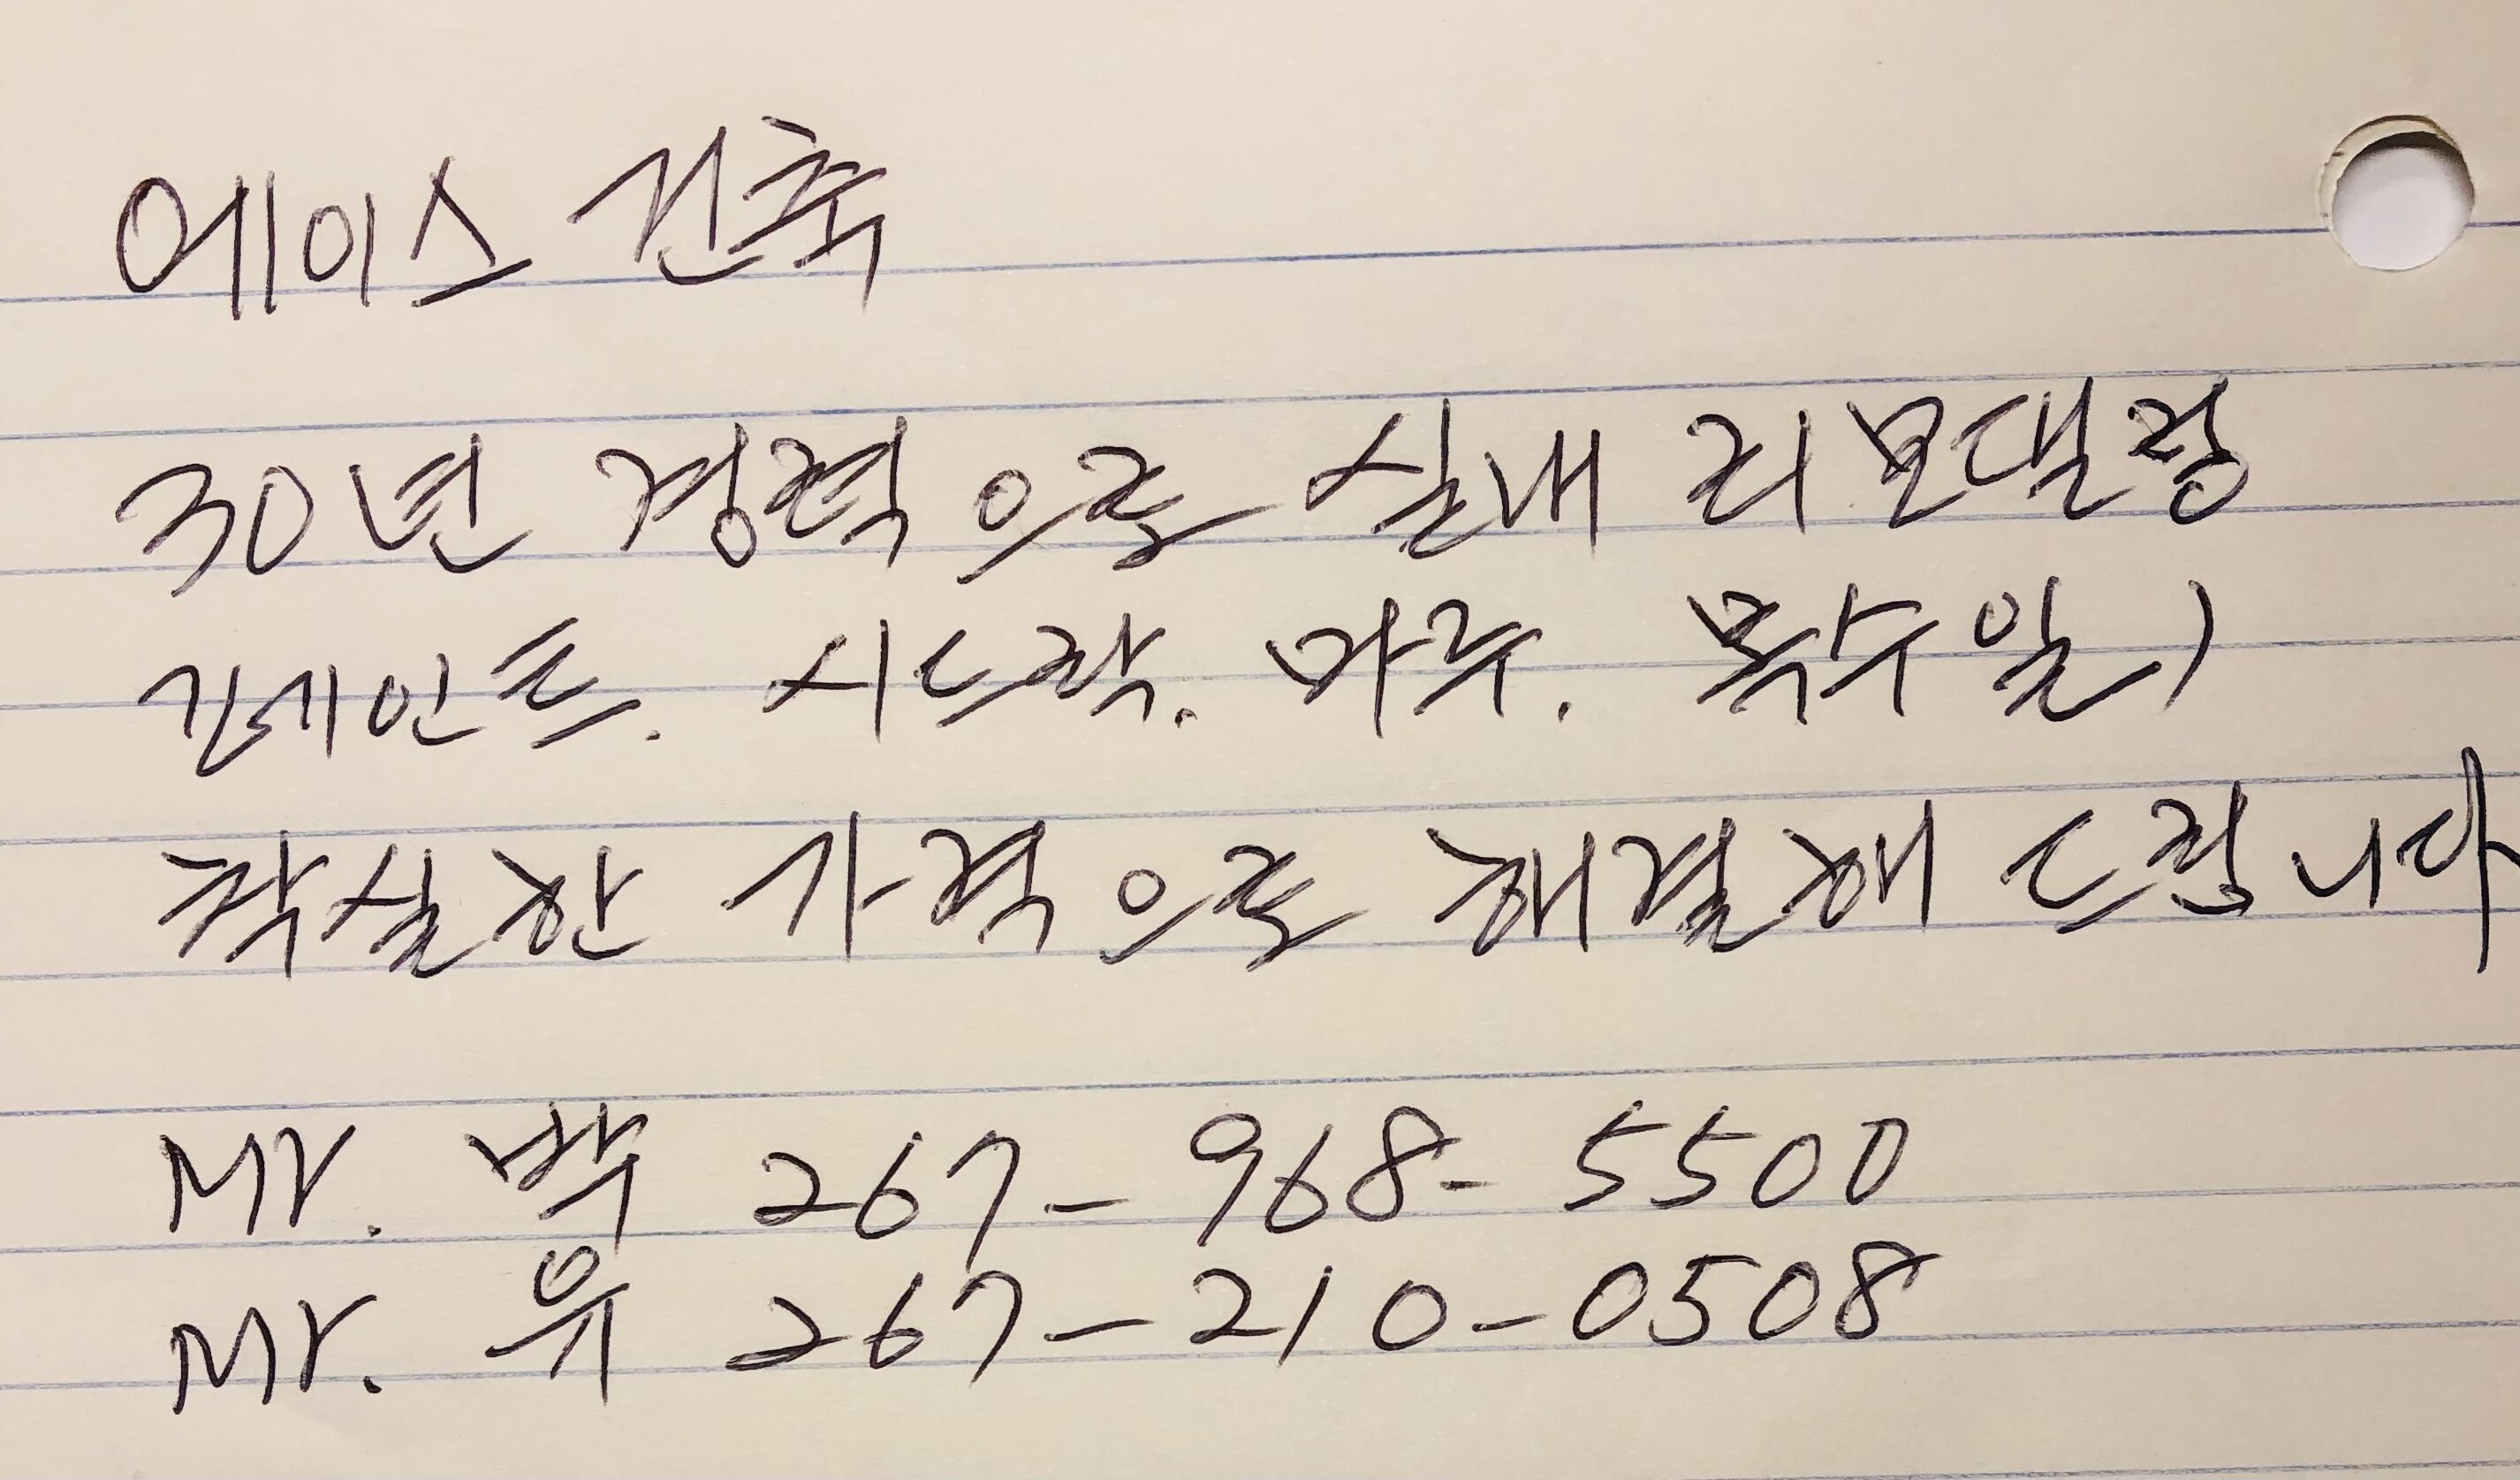 에이스 건축
30년 경력으로 실내 리모델링
페인트. 시드락. 마루. 목수일)
착실한 가격으로 해결해 드립니다
Mr. 박 267-968-5500
Mr. 유 267-210-0508